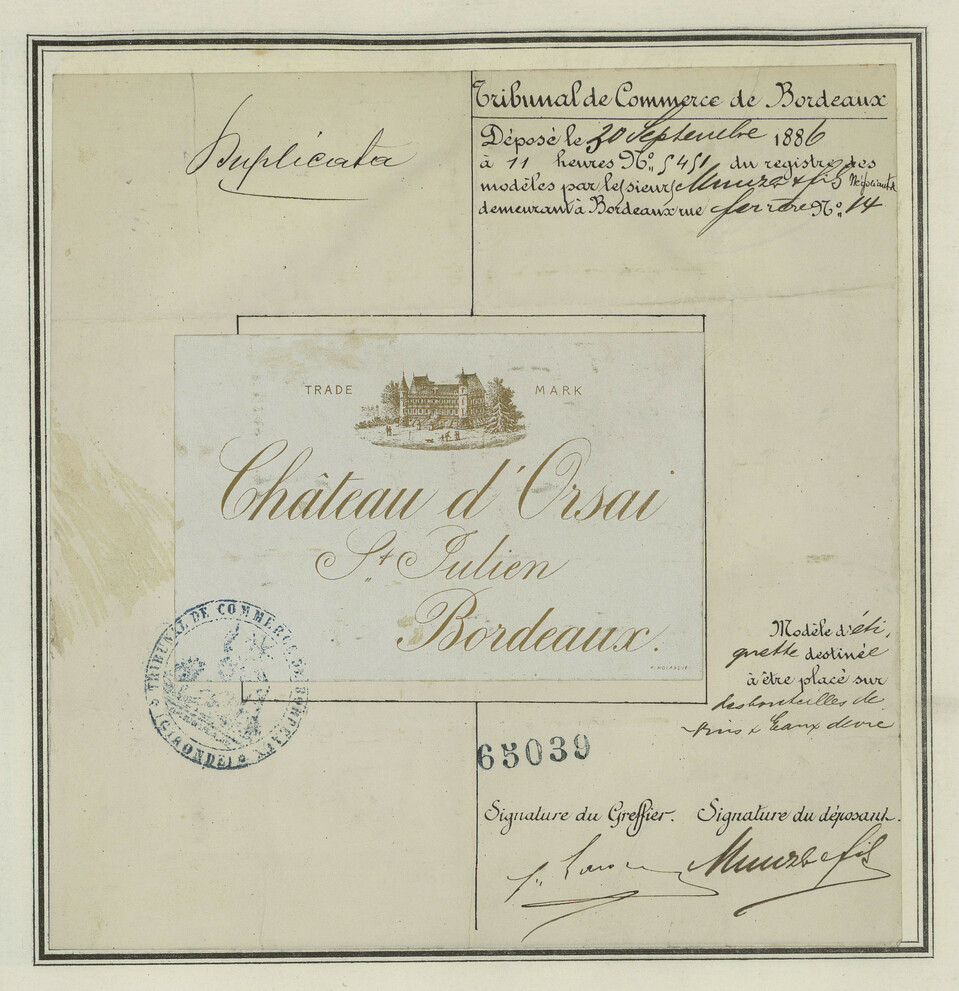 Duplicata
Tribunal de Commerce de Bordeaux
Déposé le 30 Septembre 1886
à 11 heures No. 5451 du registre des
modèles par le sieur & fils Négociants
demeurant à Bordeaux rue ferrère No. 14
TRADE MARK
Château d'Orsai
St Julien
Bordeaux.
TRIBUNAL DE COMMERCE DE BORDEAUX
(GIRONDE)
Modèle d'éti,
quette destinée
à être placé sur
des bouteilles de
vins & Eaux de vie
65039
Signature du Greffier. Signature du déposant.
& fils